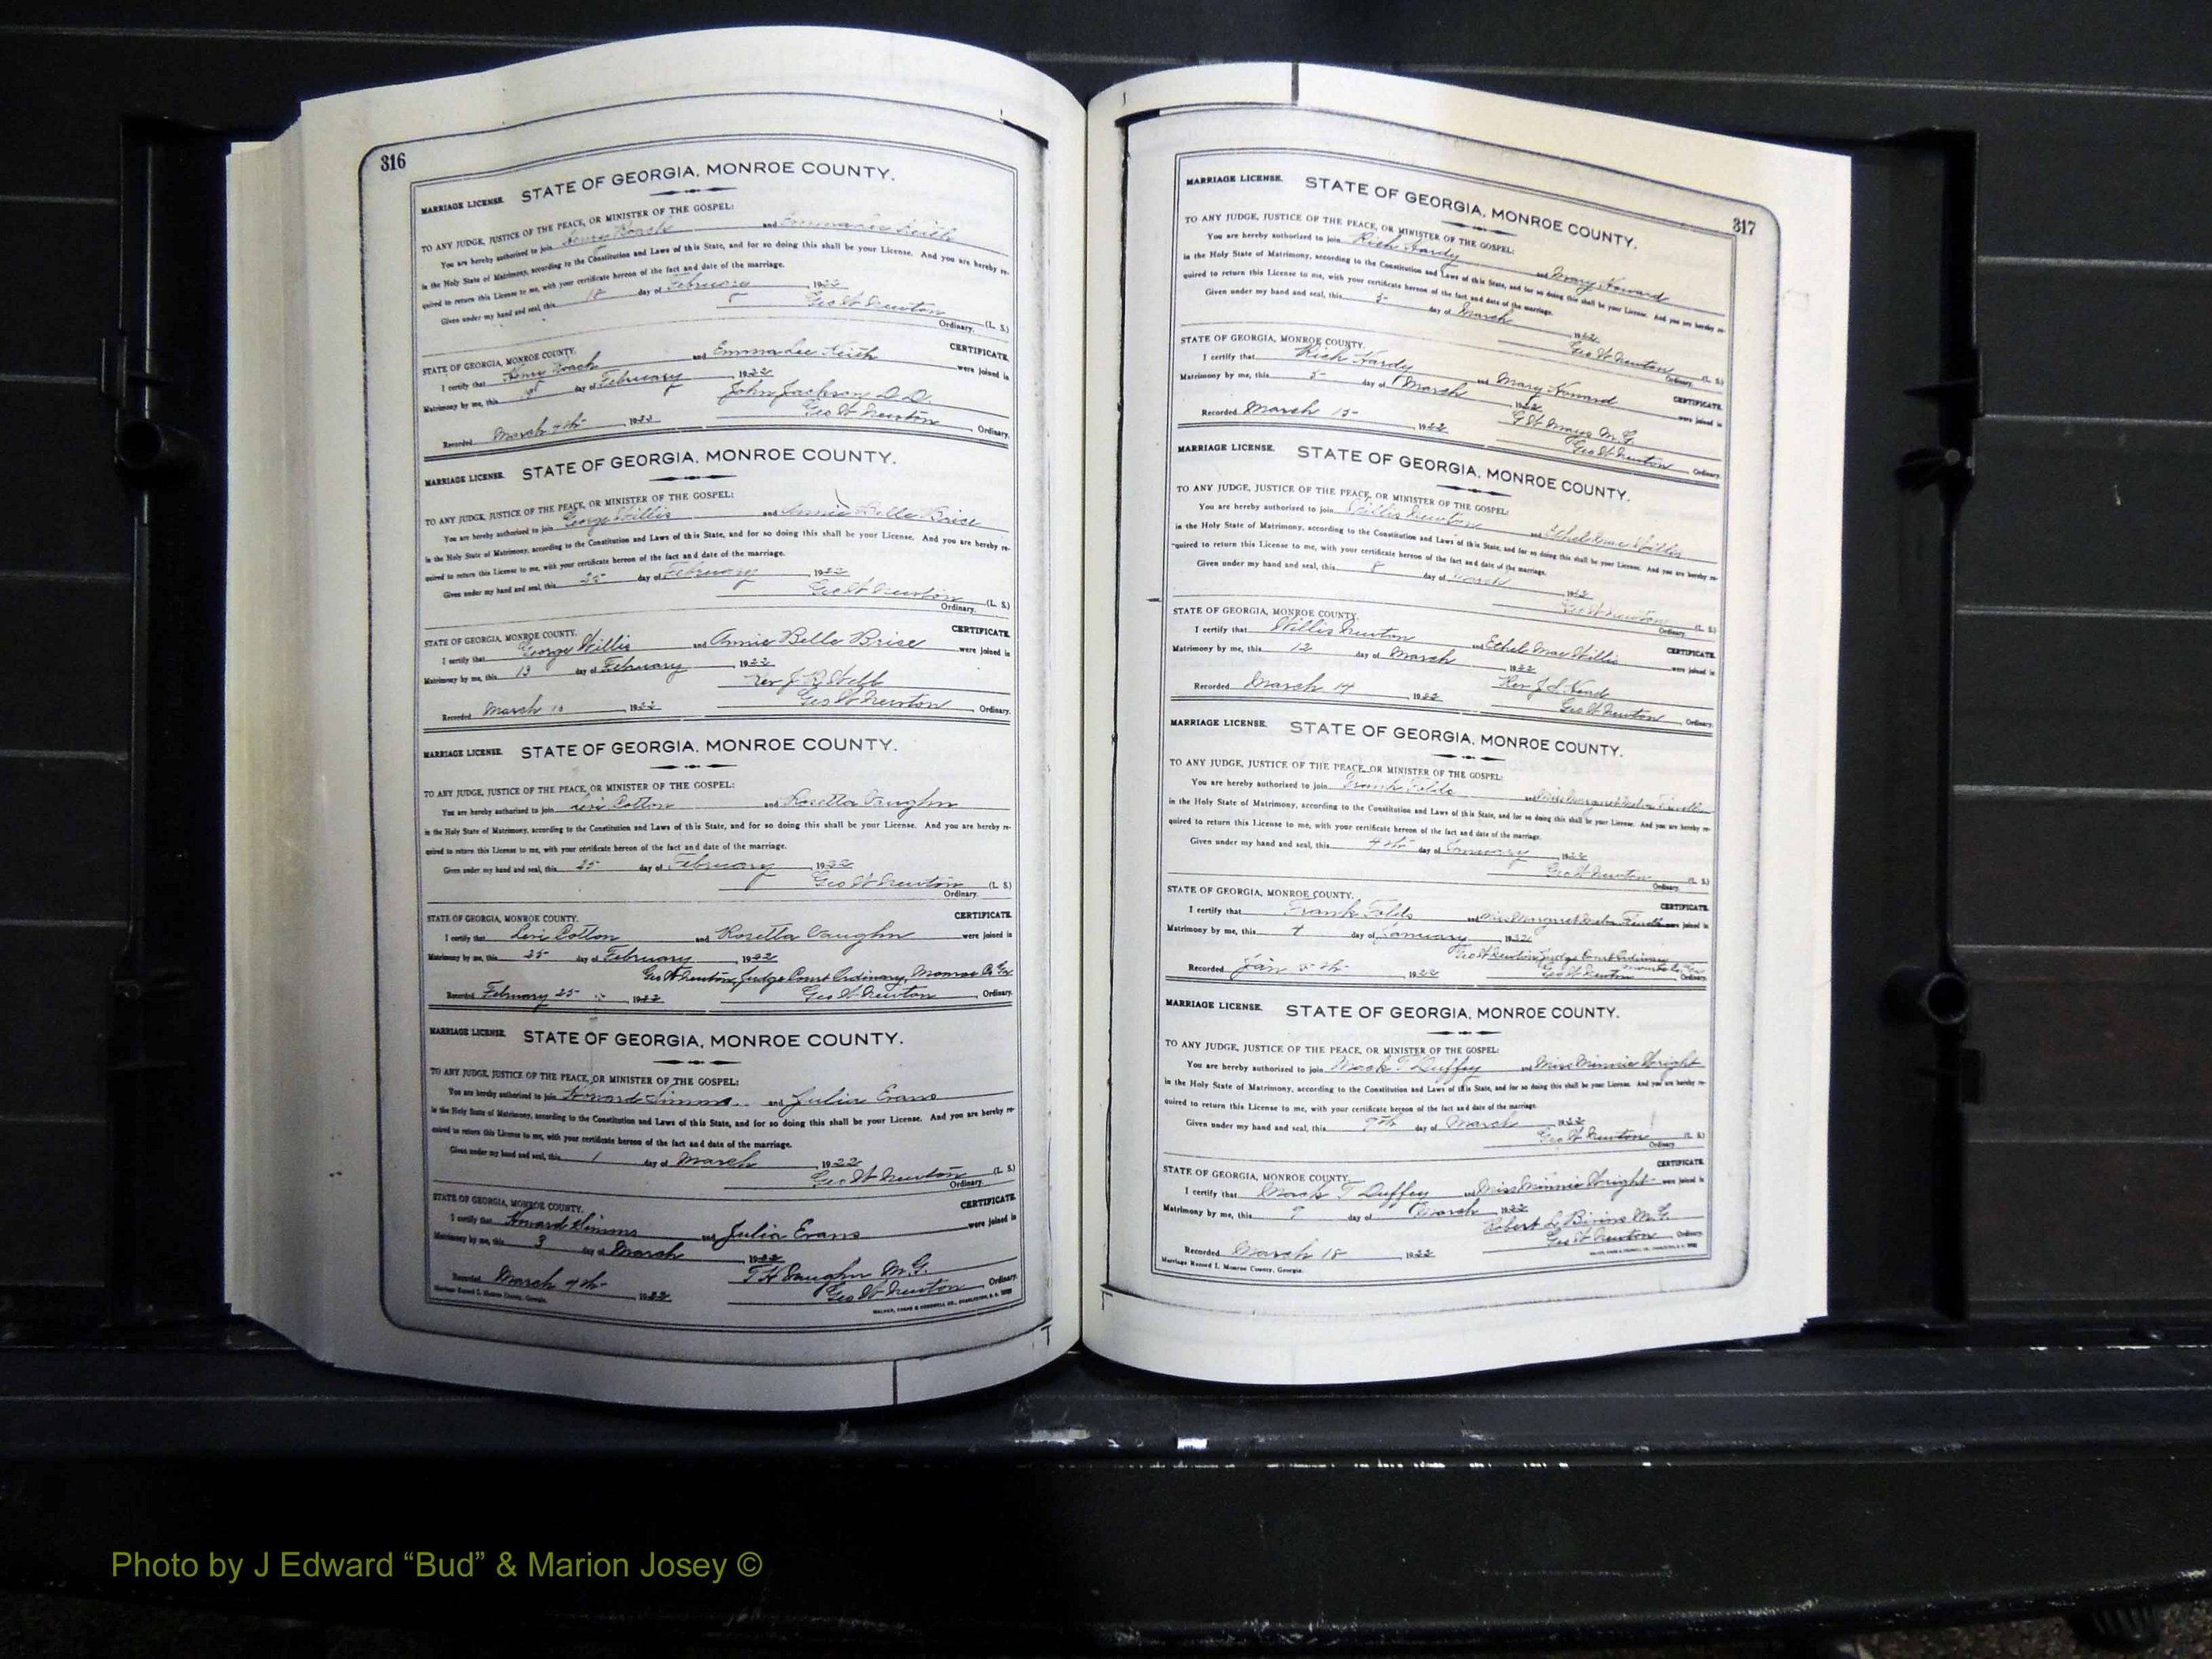 316
MARRIAGE LICENSE. STATE OF GEORGIA, MONROE COUNTY.
TO ANY JUDGE, JUSTICE OF THE PEACE, OR MINISTER OF THE GOSPEL:
You are hereby authorized to join Henry Roach and Emma Lee Keith
in the Holy State of Matrimony, according to the Constitution and Laws of this State, and for so doing this shall be your License. And you are hereby re-
quired to return this License to me, with your certificate hereon of the fact and date of the marriage.
Given under my hand and seal, this 18 day of February, 1922
Geo W Newton (L. S.)
Ordinary.
STATE OF GEORGIA, MONROE COUNTY. CERTIFICATE.
I certify that Henry Roach and Emma Lee Keith were joined in
Matrimony by me, this day of February, 1922
John Jackson D.D.
Recorded March 7th 1922 Geo W Newton Ordinary.
MARRIAGE LICENSE. STATE OF GEORGIA, MONROE COUNTY.
TO ANY JUDGE, JUSTICE OF THE PEACE, OR MINISTER OF THE GOSPEL:
You are hereby authorized to join George Willis and Annie Belle Brice
in the Holy State of Matrimony, according to the Constitution and Laws of this State, and for so doing this shall be your License. And you are hereby re-
quired to return this License to me, with your certificate hereon of the fact and date of the marriage.
Given under my hand and seal, this day of February, 1922
Geo W Newton (L. S.)
Ordinary.
STATE OF GEORGIA, MONROE COUNTY. CERTIFICATE.
I certify that George Willis and Annie Belle Brice were joined in
Matrimony by me, this 13 day of February, 1922
Rev J. R. Webb
Recorded March 1922 Geo W Newton, Ordinary.
MARRIAGE LICENSE. STATE OF GEORGIA, MONROE COUNTY.
TO ANY JUDGE, JUSTICE OF THE PEACE, OR MINISTER OF THE GOSPEL:
You are hereby authorized to join Levi Cotton and Rosetta Vaughn
in the Holy State of Matrimony, according to the Constitution and Laws of this State, and for so doing this shall be your License. And you are hereby re-
quired to return this License to me, with your certificate hereon of the fact and date of the marriage.
Given under my hand and seal, this 25 day of February, 1922
Geo W Newton (L. S.)
Ordinary.
STATE OF GEORGIA, MONROE COUNTY. CERTIFICATE.
I certify that Levi Cotton and Rosetta Vaughn were joined in
Matrimony by me, this 25 day of February, 1922
Geo W Newton, Judge Court Ordinary, Monroe Co Ga.
Recorded February 25 1922 Geo W Newton, Ordinary.
MARRIAGE LICENSE. STATE OF GEORGIA, MONROE COUNTY.
TO ANY JUDGE, JUSTICE OF THE PEACE, OR MINISTER OF THE GOSPEL:
You are hereby authorized to join Howard Simms and Julia Evans
in the Holy State of Matrimony, according to the Constitution and Laws of this State, and for so doing this shall be your License. And you are hereby re-
quired to return this License to me, with your certificate hereon of the fact and date of the marriage.
Given under my hand and seal, this 1 day of March, 1922
Geo W Newton (L. S.)
Ordinary.
STATE OF GEORGIA, MONROE COUNTY. CERTIFICATE.
I certify that Howard Simms and Julia Evans were joined in
Matrimony by me, this 3 day of March, 1922
T H Vaughn M.G.
Recorded March 7th 1922 Geo W Newton, Ordinary.
Marriage Record I. Monroe County, Georgia.
WALKER, EVANS & COGSWELL CO., CHARLESTON, S. C.
317
MARRIAGE LICENSE. STATE OF GEORGIA, MONROE COUNTY.
TO ANY JUDGE, JUSTICE OF THE PEACE, OR MINISTER OF THE GOSPEL:
You are hereby authorized to join Rich Hardy and Mary Howard
in the Holy State of Matrimony, according to the Constitution and Laws of this State, and for so doing this shall be your License. And you are hereby re-
quired to return this License to me, with your certificate hereon of the fact and date of the marriage.
Given under my hand and seal, this 5 day of March 1922
Geo W Newton (L. S.)
Ordinary.
STATE OF GEORGIA, MONROE COUNTY. CERTIFICATE.
I certify that Rich Hardy and Mary Howard were joined in
Matrimony by me, this 5 day of March, 1922
G W M.G.
Recorded March 15 1922 Geo W Newton Ordinary.
MARRIAGE LICENSE. STATE OF GEORGIA, MONROE COUNTY.
TO ANY JUDGE, JUSTICE OF THE PEACE, OR MINISTER OF THE GOSPEL:
You are hereby authorized to join Willis Newton and Ethel Mae Willis
in the Holy State of Matrimony, according to the Constitution and Laws of this State, and for so doing this shall be your License. And you are hereby re-
quired to return this License to me, with your certificate hereon of the fact and date of the marriage.
Given under my hand and seal, this 8 day of March 1922
Geo W Newton (L. S.)
Ordinary.
STATE OF GEORGIA, MONROE COUNTY. CERTIFICATE.
I certify that Willis Newton and Ethel Mae Willis were joined in
Matrimony by me, this 12 day of March, 1922
Rev J. S.
Recorded March 14, 1922 Geo W Newton, Ordinary.
MARRIAGE LICENSE. STATE OF GEORGIA, MONROE COUNTY.
TO ANY JUDGE, JUSTICE OF THE PEACE, OR MINISTER OF THE GOSPEL:
You are hereby authorized to join Frank Folds and Miss Margaret
in the Holy State of Matrimony, according to the Constitution and Laws of this State, and for so doing this shall be your License. And you are hereby re-
quired to return this License to me, with your certificate hereon of the fact and date of the marriage.
Given under my hand and seal, this 4th day of January, 1922
Geo W Newton (L. S.)
Ordinary.
STATE OF GEORGIA, MONROE COUNTY. CERTIFICATE.
I certify that Frank Folds and Miss Margaret were joined in
Matrimony by me, this 4 day of January, 1922
Geo W Newton Judge Court Ordinary
Recorded Jan 5th, 1922 Geo W Newton Ordinary.
MARRIAGE LICENSE. STATE OF GEORGIA, MONROE COUNTY.
TO ANY JUDGE, JUSTICE OF THE PEACE, OR MINISTER OF THE GOSPEL:
You are hereby authorized to join Mack T Duffey and Miss Minnie Wright
in the Holy State of Matrimony, according to the Constitution and Laws of this State, and for so doing this shall be your License. And you are hereby re-
quired to return this License to me, with your certificate hereon of the fact and date of the marriage.
Given under my hand and seal, this 9th day of March, 1922
Geo W Newton (L. S.)
Ordinary.
STATE OF GEORGIA, MONROE COUNTY. CERTIFICATE.
I certify that Mack T Duffey and Miss Minnie Wright were joined in
Matrimony by me, this 9 day of March, 1922
Robert L Bivins M.G.
Recorded March 18, 1922 Geo W Newton, Ordinary.
Marriage Record I. Monroe County, Georgia.
WALKER, EVANS & COGSWELL CO., CHARLESTON, S. C.
Photo by J Edward “Bud” & Marion Josey ©